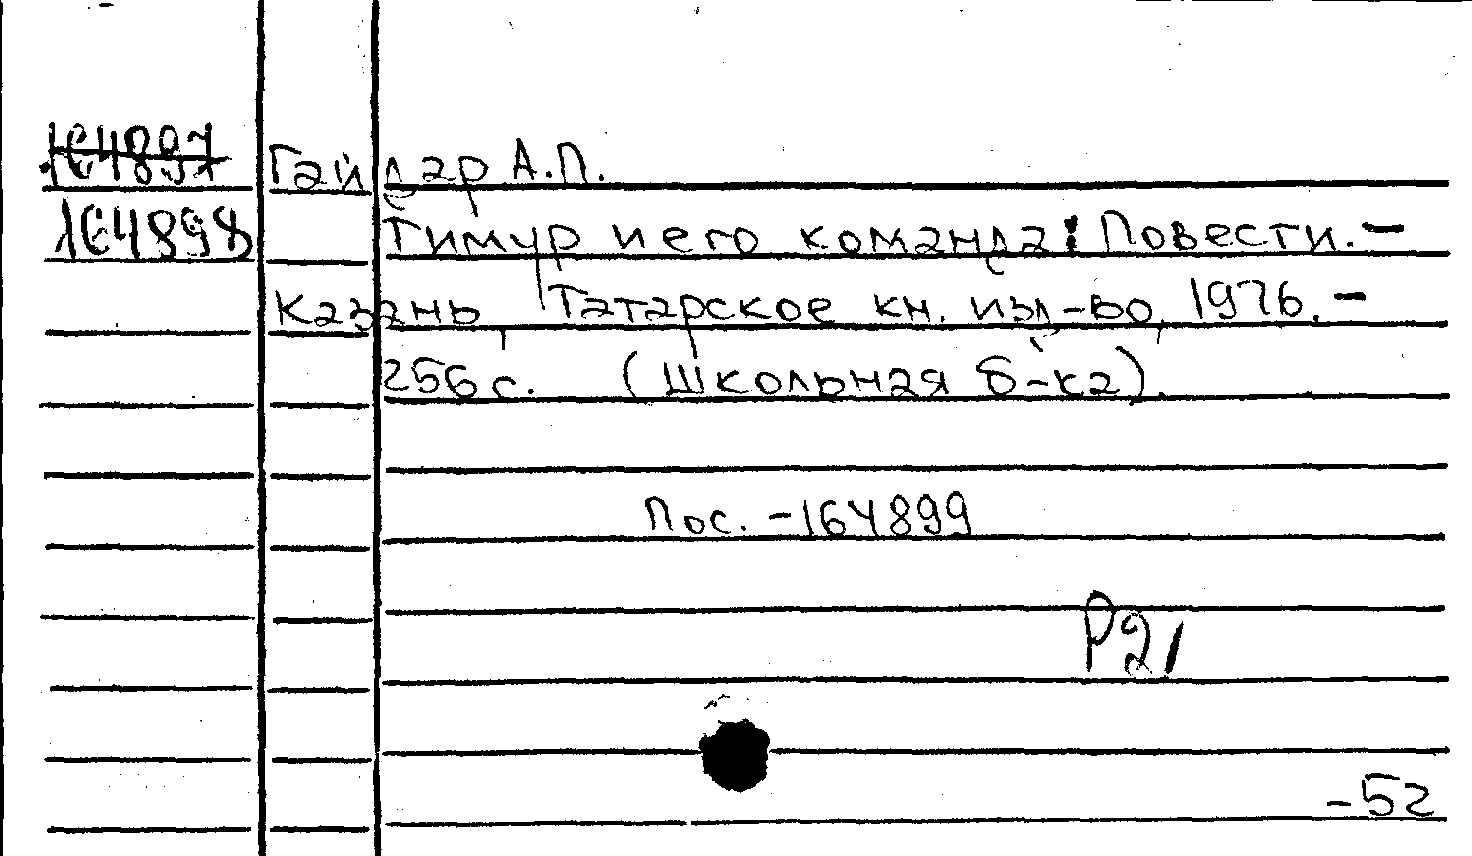 164897 Гайдар А.П.
164898 Тимур и его команда: Повести. -
Казань, Татарское кн. изд-во, 1976. -
256 с. (Школьная б-ка).
Пос. - 164899
Р21
-52